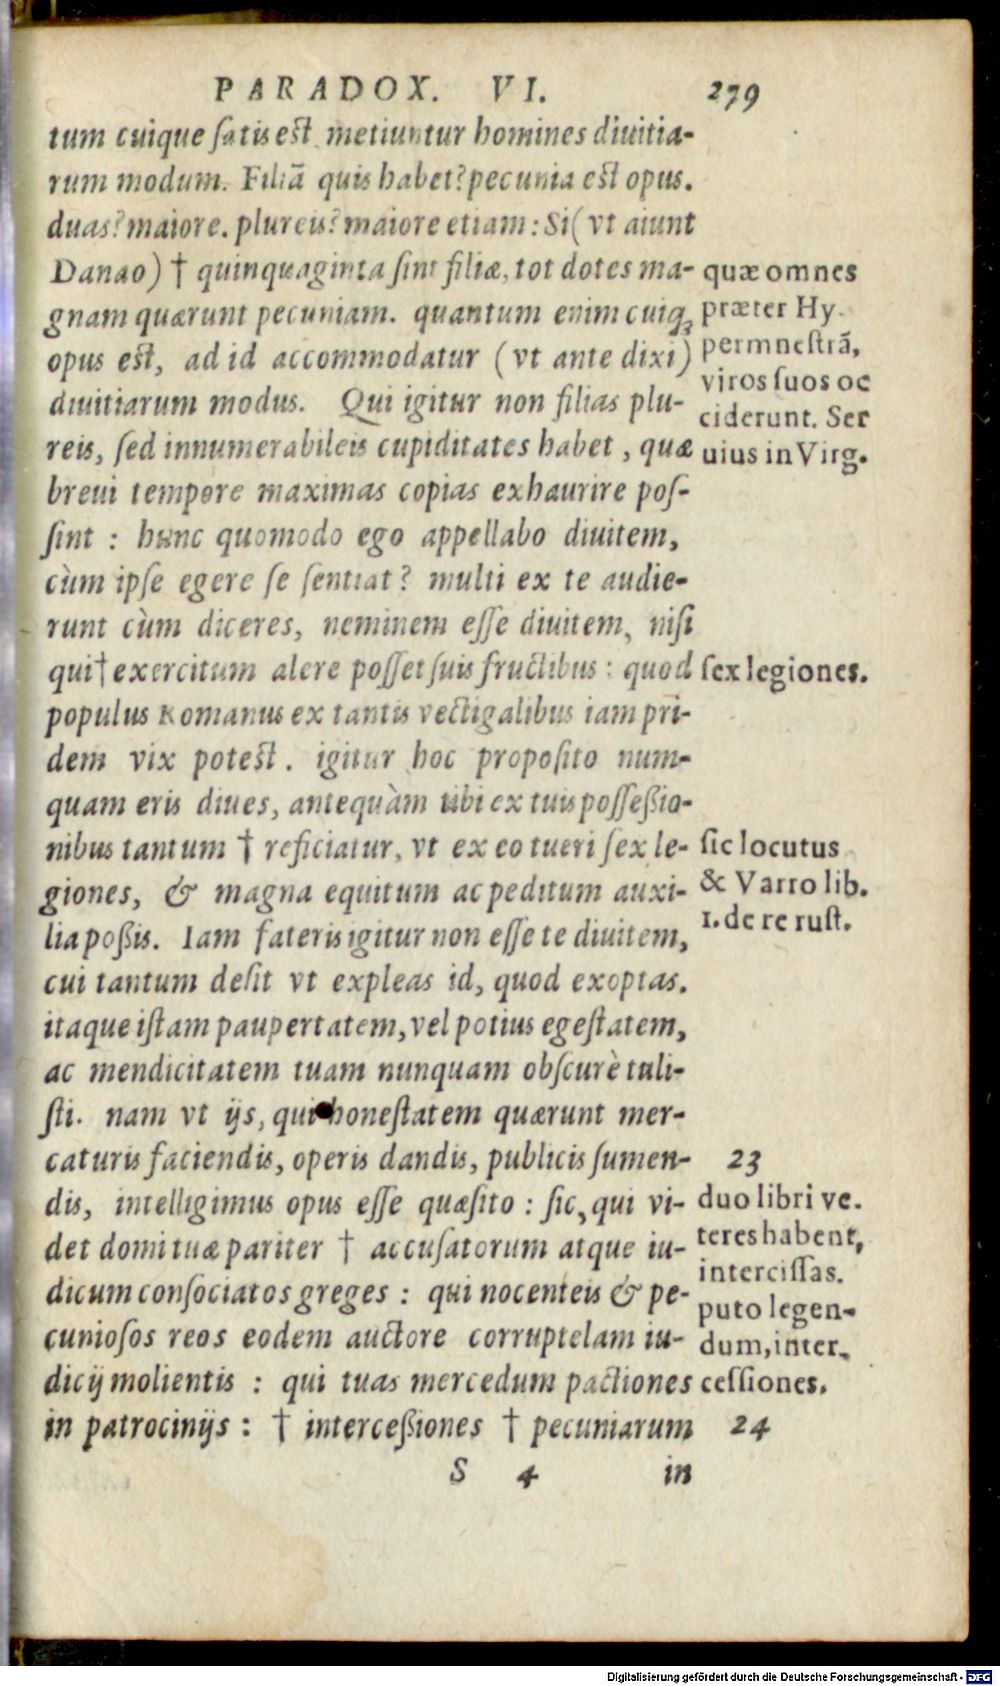 PARADOX. VI. 279
tum cuique ſatis est metiuntur homines diuitia-
rum modum. Filiā quis habet? pecunia est opus.
duas? maiore. plureis? maiore etiam: Si (vt aiunt
Danao) † quinquaginta ſint filiæ, tot dotes ma-
gnam quærunt pecuniam. quantum enim cuiq;
opus est, ad id accommodatur (vt ante dixi)
diuitiarum modus. Qui igitur non filias plu-
reis, ſed innumerabileis cupiditates habet, quæ
breui tempore maximas copias exhaurire poſ-
ſint: hunc quomodo ego appellabo diuitem,
cùm ipſe egere ſe ſentiat? multi ex te audie-
runt cùm diceres, neminem eſſe diuitem, niſi
qui † exercitum alere poſſet ſuis fructibus: quod
populus Romanus ex tantis vectigalibus iam pri-
dem vix potest. igitur hoc propoſito num-
quam eris diues, antequàm tibi ex tuis poſſeßio-
nibus tantum † reficiatur, vt ex eo tueri ſex le-
giones, & magna equitum ac peditum auxi-
lia poßis. Iam fateris igitur non eſſe te diuitem,
cui tantum deſit vt expleas id, quod exoptas.
itaque iſtam paupertatem, vel potius egeſtatem,
ac mendicitatem tuam nunquam obſcurè tuli-
ſti. nam vt ijs, qui honeſtatem quærunt mer-
caturis faciendis, operis dandis, publicis ſumen-
dis, intelligimus opus eſſe quæſito: ſic, qui vi-
det domi tuæ pariter † accuſatorum atque iu-
dicum conſociatos greges: qui nocenteis & pe-
cunioſos reos eodem auctore corruptelam iu-
dicij molientis: qui tuas mercedum pactiones
in patrocinijs: † interceßiones † pecuniarum
S 4 in
quæ omnes
præter Hy-
permneſtrā,
viros ſuos oc
ciderunt. Ser
uius in Virg.
ſex legiones.
ſic locutus
& Varro lib.
1. de re ruſt.
23
duo libri ve.
teres habent,
interciſſas.
puto legen-
dum, inter-
ceſſiones.
24
Digitalisierung gefördert durch die Deutsche Forschungsgemeinschaft - DFG